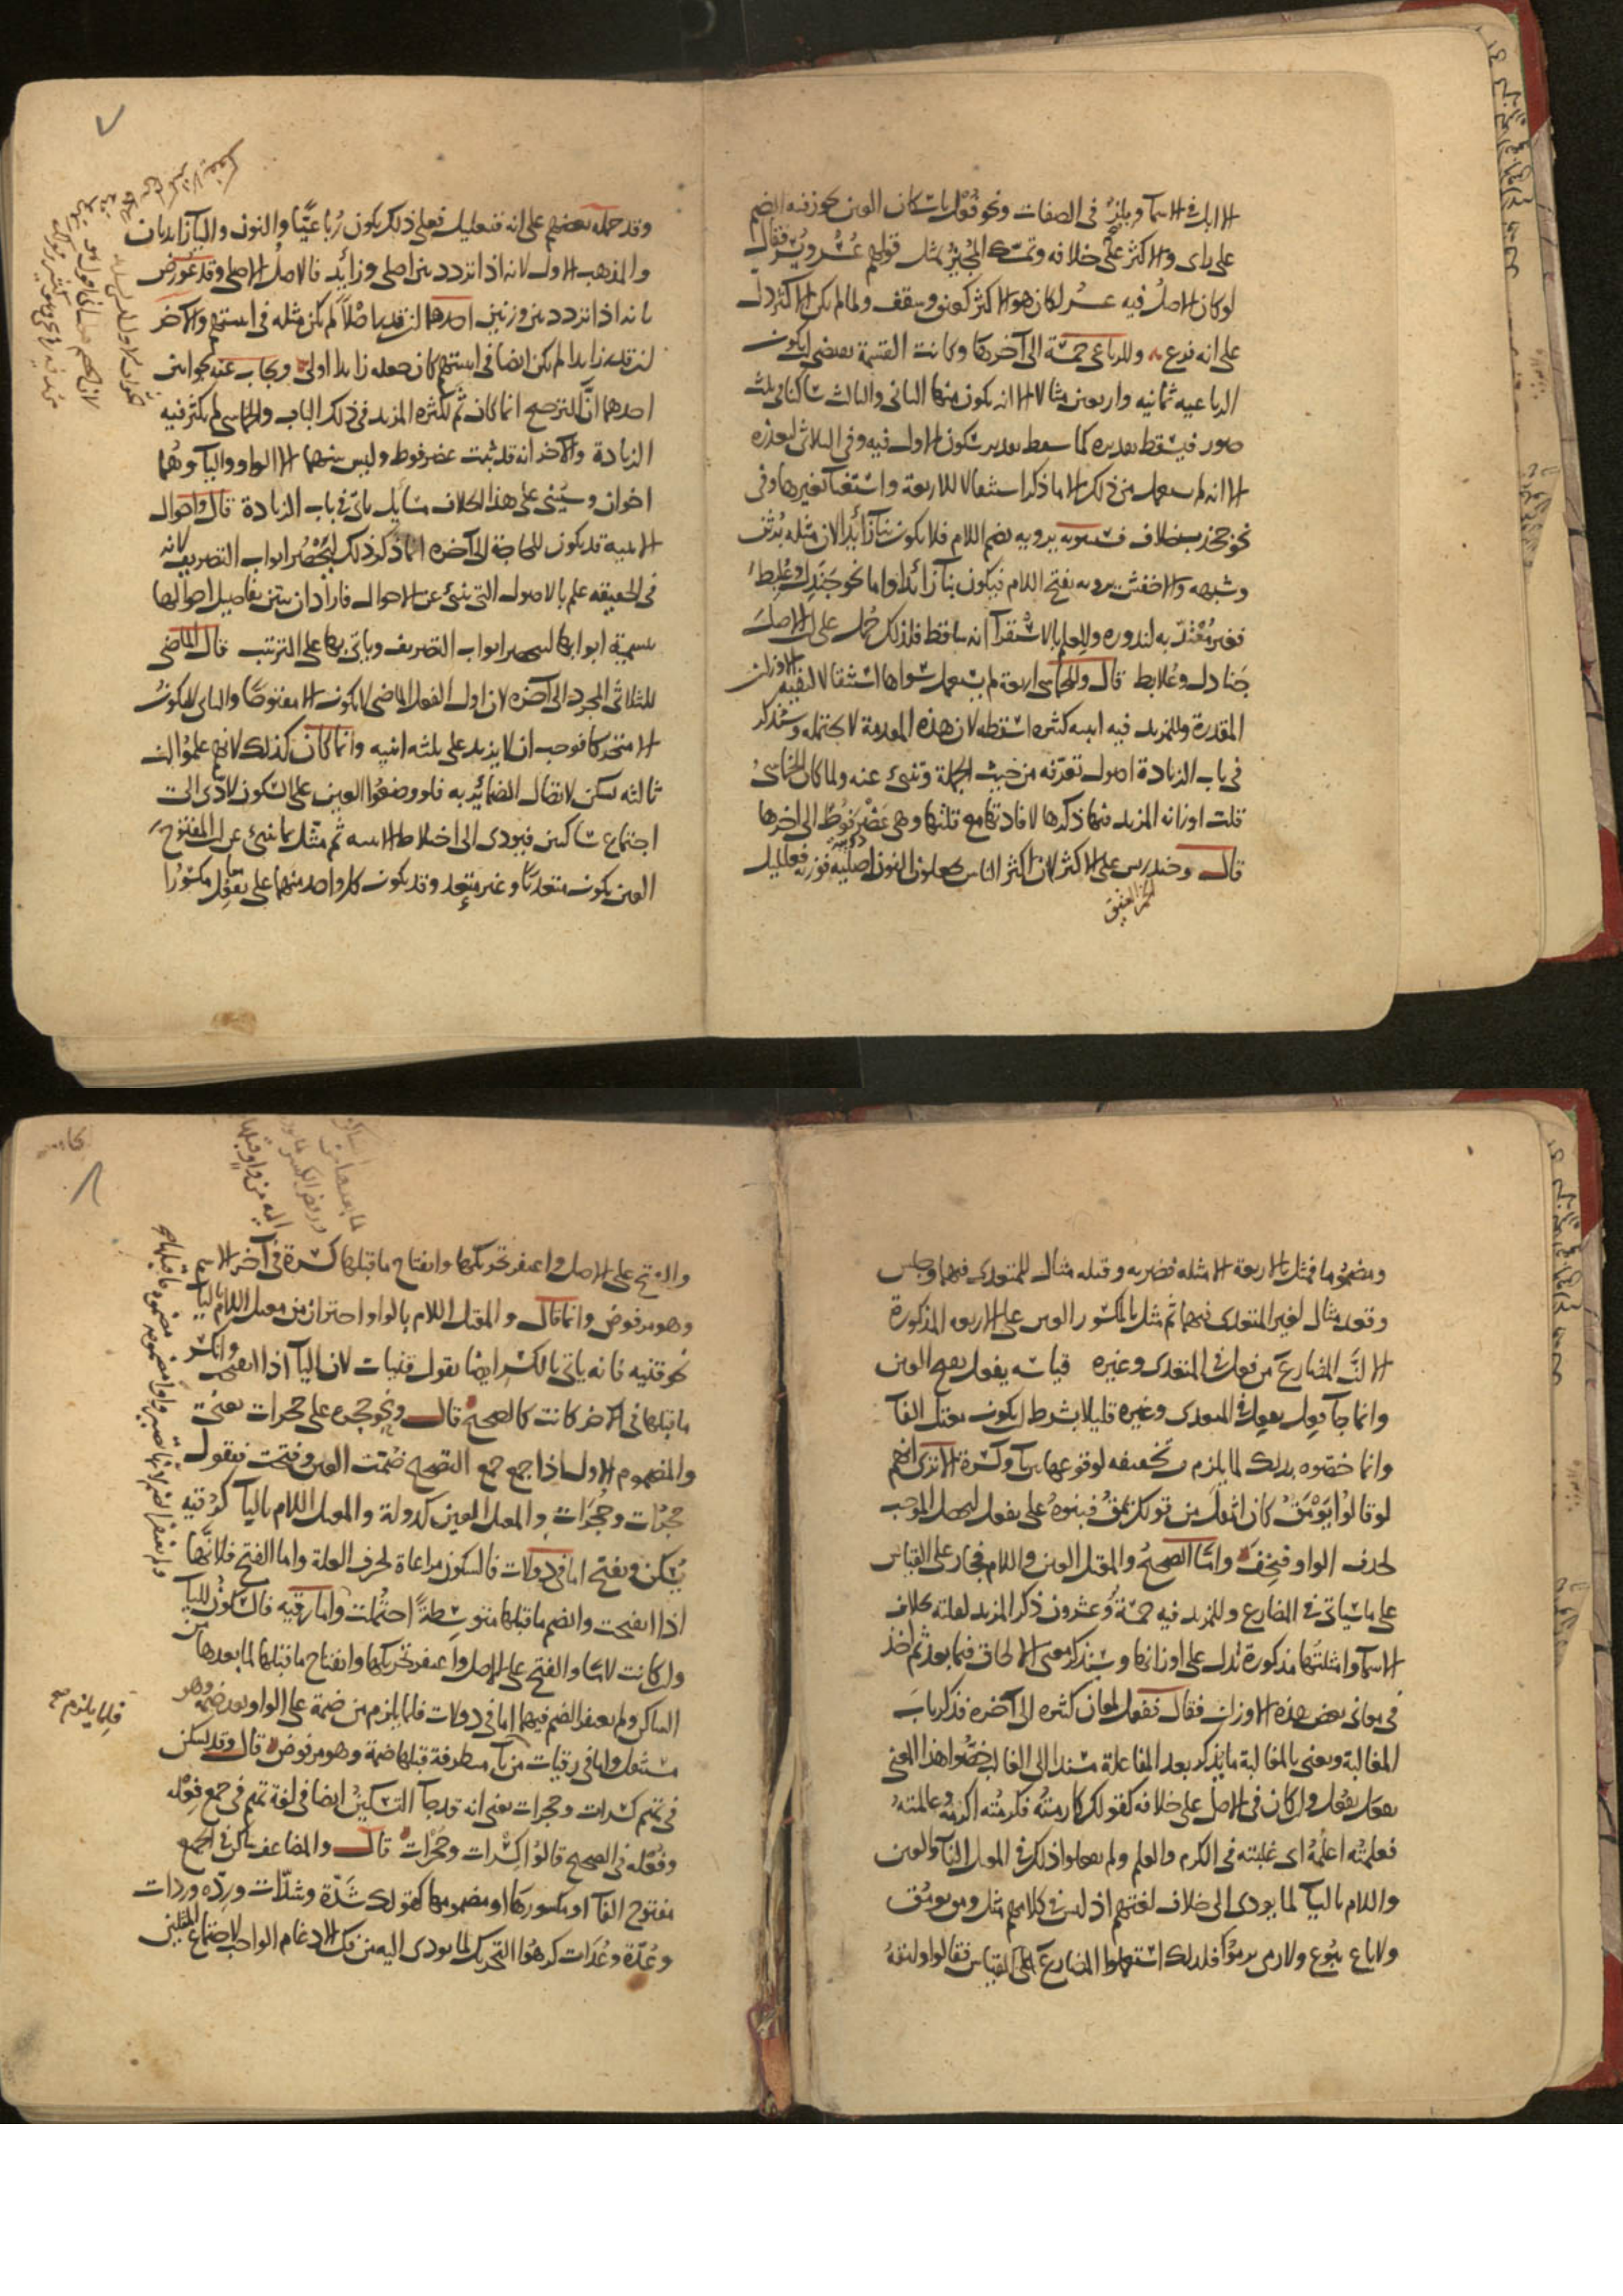 الا ابل في الاسماء وبلز في الصفات ونحو قفل باسكان العين يجوز فيه الضم
على راى والاكثر على خلافه وتمسك المجيز بمثل قولهم عسر ويسر فقال
لو كان الاصل فيه عسر لكان هو الاكثر كعنق وسقف ولما لم يكن الاكثر دل
على انه فرع وللرباعى خمسة الى آخرها وكانت القسمة تقتضى ان يكون
الرباعية ثمانية واربعين مثالا الا انه يكون منها الثانى والثالث ساكنا فى ثلث
صور فيسقط تقديره كما سقط تقدير سكون الاول فيه وفى الثلاثى لتعذره
الا انه لم يستعمل من ذلك الا ما ذكر استثقالا للاربعة واستغناء بغيرها وفى
نحو جخدب خلاف فسيبويه يرويه بضم اللام فلا يكون بناء زائدا لان مثله برثن
وشبهه والاخفش يرويه بفتح اللام فيكون بناء زائدا واما نحو جندل وعلبط
فغير معتد به لندوره وللعلم بالاستقراء انه ساقط فلذلك حمل على ان الاصل
جنادل وعلابط قال وللخماسى اربعة لم يستعمل سواها استثقالا لبقية الاوزان
المقدرة وللمزيد فيه ابنية كثيرة اسقطه لان هذه المقدمة لا تحتمله وستذكر
فى باب الزيادة اصول تعرفه من حيث الجملة وتنبئ عنه ولما كان الخماسى
قلت اوزانه المزيد فيها ذكرها لافادتها مع قلتها وهى عضرفوط الى اخرها
قال وخندريس على الاكثر لان اكثر الناس يجعلون النون اصلية فوزنه فعلليل
الخمر العتيق
٧
وقد حمله بعضهم على انه فنعليل فعلى ذلك يكون رباعيا والنون والياء زايدتان
والمذهب الاول لانه اذا تردد بين اصلى وزائد فالاصل الاصلى وقد عورض
بانه اذا تردد بين وزنين احدهما ان قدر اصلا لم يكن مثله فى ابنيتهم والآخر
ان قدر زايدا لم يكن ايضا فى ابنيتهم كان جعله زايدا اولى ويجاب عنه بجوابين
احدهما ان الترجيح انما كان ثم لكثرة المزيد فى ذلك الباب والخماسى لم يكثر فيه
الزيادة والآخر انه قد ثبت عضرفوط وليس بينهما الا الواو والياء وهما
اخوان وسينبنى على هذا الخلاف مسايل تاتى فى باب الزيادة قال واحوال
الابنية قد يكون للحاجة الى آخره انما ذكر ذلك ليحصر ابواب التصريف لانه
فى الحقيقة علم بالاصول التى تنبئ عن الاحوال فاراد ان يبين تفاصيل احوالها
بتسمية ابوابها لينحصر ابواب التصريف وياتى بها على الترتيب قال الماضى
للثلاثى المجرد الى آخره لان اول الفعل الماضى لا يكون الا مفتوحا والثانى لا يكون
الا متحركا فوجب ان لا يزيد على ثلثة ابنية وانما كان كذلك لانهم علموا ان
ثالثه يسكن لاتصال الضمائر به فلو وضعوا العين على السكون لادى الى
اجتماع ساكنين فيودى الى اختلاط الابنية ثم مثل بما ينبئ عن ان المفتوح
العين يكون متعديا وغير متعد وقد يكون كل واحد منهما على يفعل مكسورا
ومضموما فمثل بالاربعة الامثلة فضربه وقتله مثال للمتعدى فيهما وجلس
وقعد مثال لغير المتعدى فيهما ثم مثل بالمكسور العين على الاربعة المذكورة
الا ان المضارع من فعل فى المتعدى وغيره قياسه يفعل بفتح العين
وانما جاء فعل يفعل فى المتعدى وغيره قليلا بشرط ان يكون معتل الفاء
وانما خصوه بذلك لما يلزم من تخفيفه لوقوعها بين ياء وكسرة الا ترى انهم
لو قالوا يومق كان اثقل من قولك يمق فبنوه على يفعل ليحصل الموجب
لحذف الواو فيخف واما الصحيح والمعتل العين واللام فجار على القياس
على ما سياتى فى المضارع وللمزيد فيه خمسة وعشرون ذكر المزيد لقلته بخلاف
الاسماء وامثلتها مذكورة تدل على اوزانها وسنذكر معنى الالحاق فيما بعد ثم اخذ
فى معانى بعض هذه الاوزان فقال ففعل لمعان كثيرة الى آخره فذكر باب
المغالبة ويعنى بالمغالبة ما يذكر بعد المفاعلة مسندا الى الغالب خصوا هذا المعنى
بفعل يفعل وان كان فى الاصل على خلافه كقولك كارمته فكرمته اكرمه وعالمته
فعلمته اعلمه اى غلبته فى الكرم والعلم ولم يفعلوا ذلك فى المعتل الفاء والعين
واللام بالياء لما يودى الى خلاف لغتهم اذ ليس فى كلامهم مثل ومق يومق
ولا باع يبوع ولا رمى يرموا فلذلك استعملوا المضارع على القياس فقالوا
٨
والفتح على الاصل واغتفر تحريكها وانفتاح ما قبلها كسرة فى آخر الاسم
وهو مرفوض وانما قال والمعتل اللام بالواو احترازا من معتل اللام بالياء
نحو قنية فانه ياتى بالكسر ايضا تقول قنيات لان الياء اذا انفتحت وانكسر
ما قبلها فى الآخر كانت كالصحيح قال ونحو حجرة على حجرات يعنى
والمضموم الاول اذا جمع جمع التصحيح ضمت العين وفتحت فيقول
حجرات وحجرات والمعتل العين كدولة والمعتل اللام بالياء كرقية
يسكن ويفتح اما فى دولات فالسكون مراعاة لحرف العلة واما الفتح فلانها
اذا انفتحت وانضم ما قبلها متوسطة احتملت واما رقيه فالسكون للياء
وان كانت لاما والفتح على الاصل واغتفر تحريكها وانفتاح ما قبلها لما بعدها من
الساكن ولم يغتفر الضم فيهما اما فى دولات فلما يلزم من ضمة على الواو بعد ضمة وهو
مستثقل واما فى رقيات من ياء متطرفة قبلها ضمة وهو مرفوض قال وقد تسكن
فى تميم كسرات وحجرات يعنى انه قد جاء التسكين ايضا فى لغة تميم فى جمع فعلة
وفعلة فى الصحيح قالوا كسرات وحجرات قال والمضاعف ساكن فى الجمع
مفتوح الفاء او مكسورها او مضمومها كقولك شدة وشدات وردة وردات
وعدة وعدات كرهوا التحريك لما يودى اليه من فك الادغام الواجب لاجتماع المثلين
فلما يلزم صح